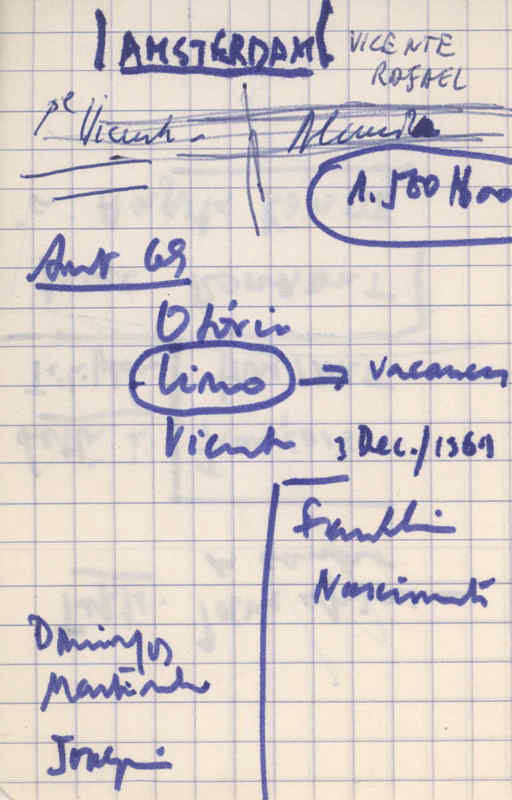 AMSTERDAM
VICENTE
RAFAEL
pe Vicente
1.500
Ant 69
Osório
Lino → vacances
Vicente 3 Dec./1969
Franklin
Nascimento
Domingos
Martinho
Joaquim